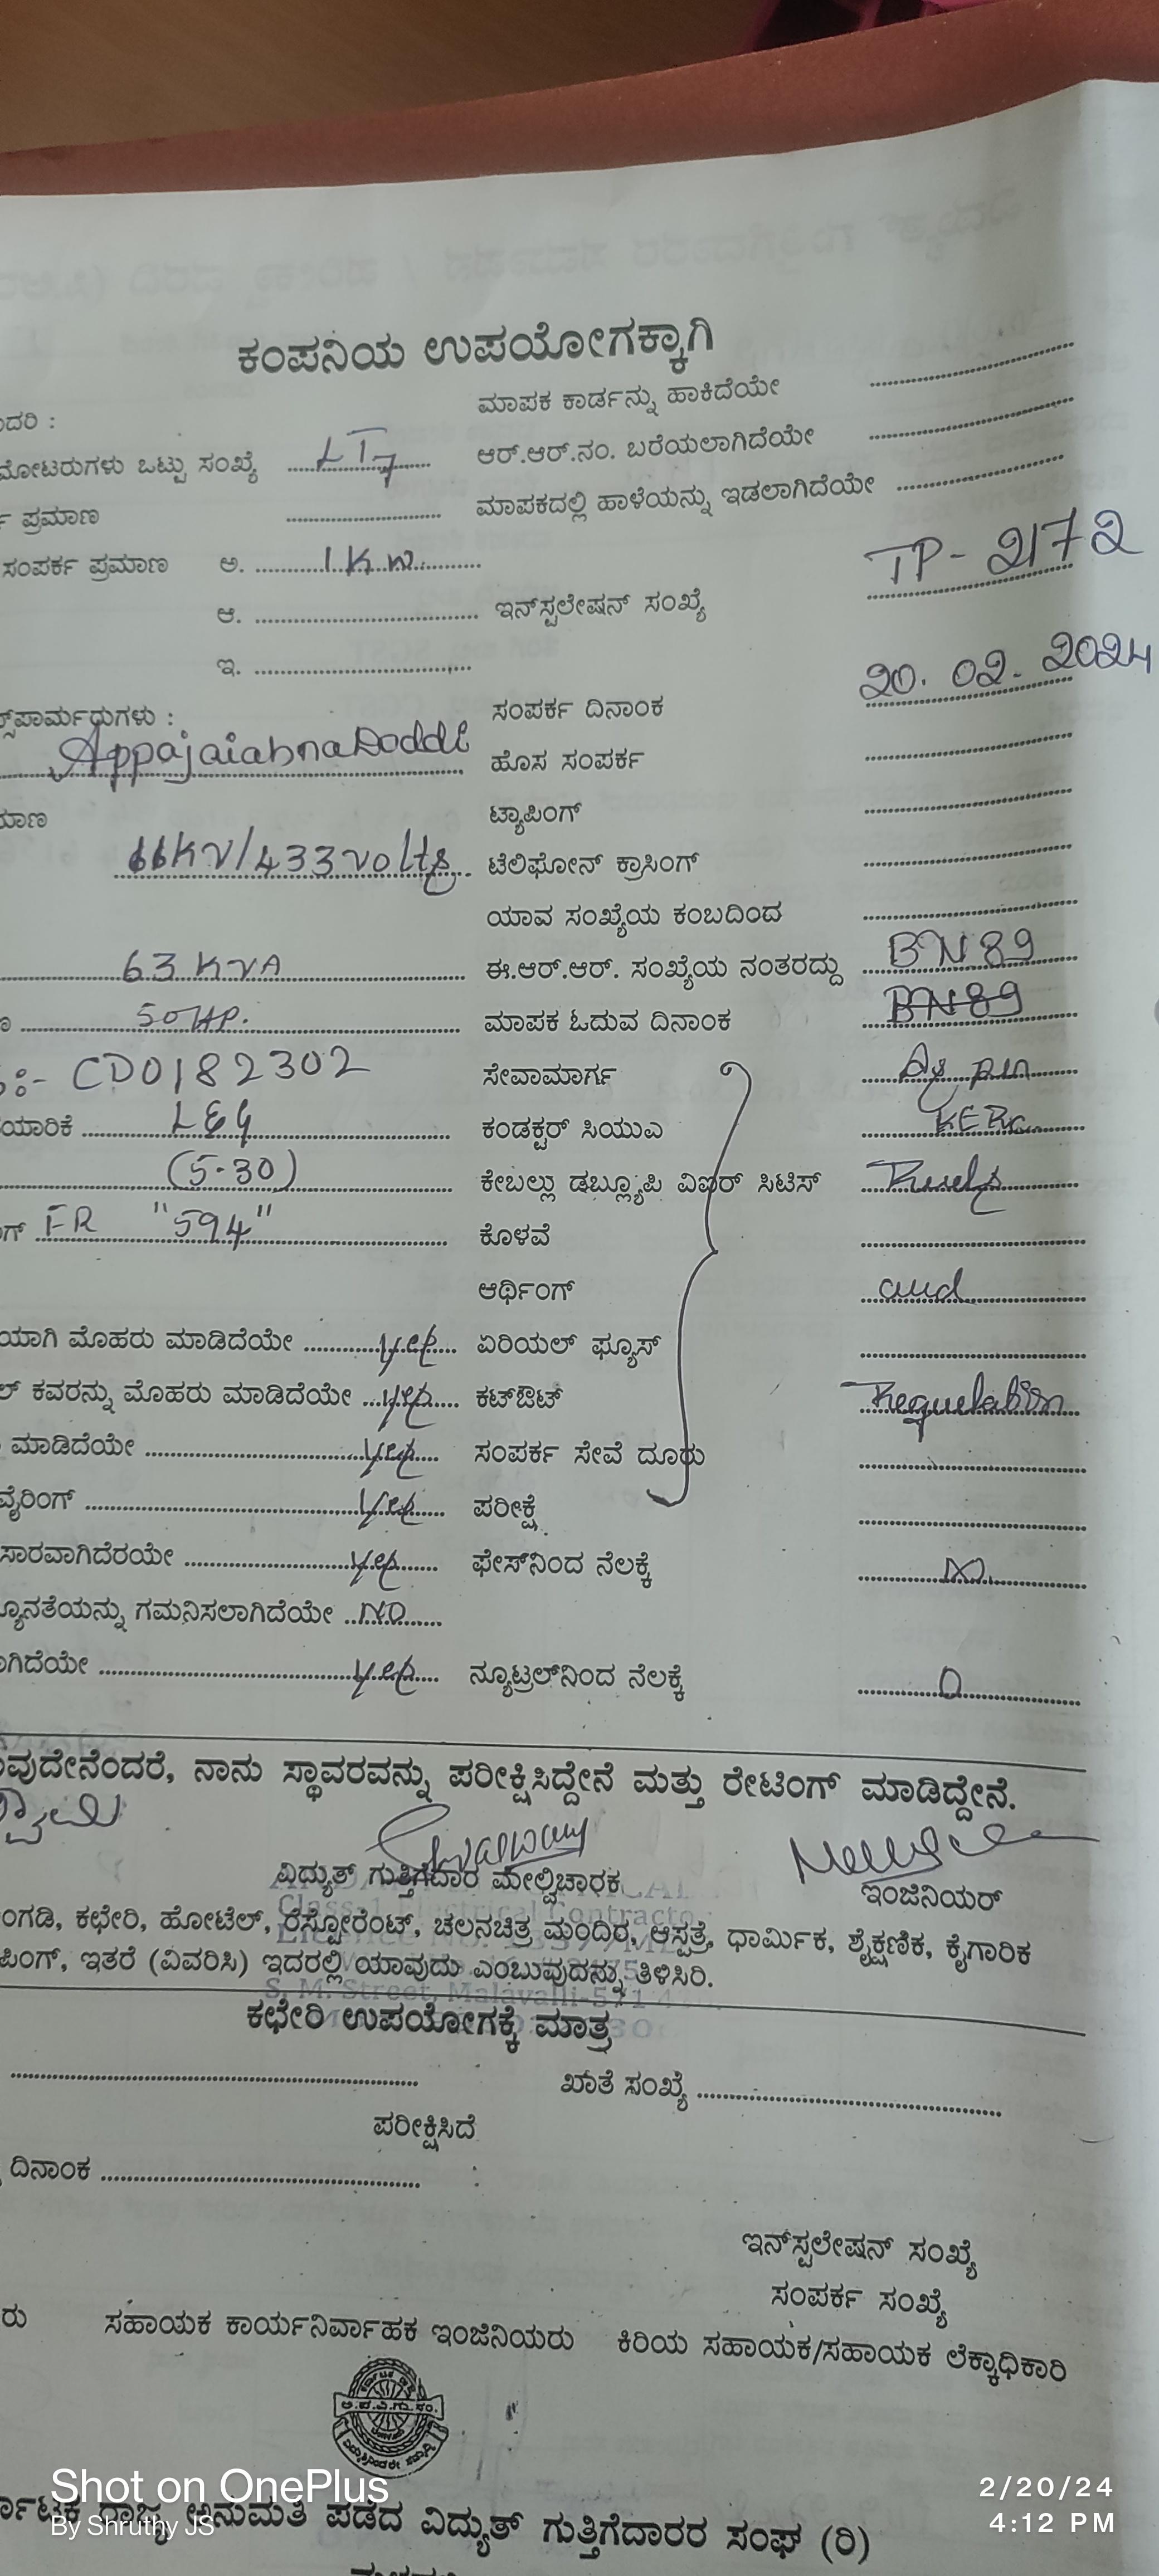 ಕಂಪನಿಯ ಉಪಯೋಗಕ್ಕಾಗಿ
ದರಿ : ಮಾಪಕ ಕಾರ್ಡನ್ನು ಹಾಕಿದೆಯೇ
ಮೋಟರುಗಳು ಒಟ್ಟು ಸಂಖ್ಯೆ LT7 ಆರ್.ಆರ್.ನಂ. ಬರೆಯಲಾಗಿದೆಯೇ
ಪ್ರಮಾಣ ಮಾಪಕದಲ್ಲಿ ಹಾಳೆಯನ್ನು ಇಡಲಾಗಿದೆಯೇ
ಸಂಪರ್ಕ ಪ್ರಮಾಣ ಅ. 1K.W.
ಆ. ಇನ್‌ಸ್ಟಲೇಷನ್ ಸಂಖ್ಯೆ TP-2172
ಇ.
ಸಂಪರ್ಕ ದಿನಾಂಕ 20.02.2024
ಸ್‌ಫಾರ್ಮರುಗಳು :
ಹೊಸ ಸಂಪರ್ಕ
ಮಾಣ ಟ್ಯಾಪಿಂಗ್
11KV/433volts ಟೆಲಿಫೋನ್ ಕ್ರಾಸಿಂಗ್
ಯಾವ ಸಂಖ್ಯೆಯ ಕಂಬದಿಂದ
63 KVA ಈ.ಆರ್.ಆರ್. ಸಂಖ್ಯೆಯ ನಂತರದ್ದು BN89
50HP. ಮಾಪಕ ಓದುವ ದಿನಾಂಕ BN89
:- CD0182302 ಸೇವಾಮಾರ್ಗ As per
ಯಾರಿಕೆ L&G ಕಂಡಕ್ಟರ್ ಸಿಯುಎ KERC
(5-30) ಕೇಬಲ್ಲು ಡಬ್ಲ್ಯೂಪಿ ವಿಐಆರ್ ಸಿಟಿಸ್ Rules
ಗ್ FR "594" ಕೊಳವೆ
ಆರ್ಥಿಂಗ್ and
ಯಾಗಿ ಮೊಹರು ಮಾಡಿದೆಯೇ yes ಏರಿಯಲ್ ಫ್ಯೂಸ್
ಲ್ ಕವರನ್ನು ಮೊಹರು ಮಾಡಿದೆಯೇ yes ಕಟ್‌ಔಟ್ Regulation
ಮಾಡಿದೆಯೇ yes ಸಂಪರ್ಕ ಸೇವೆ ದೂರು
ವೈರಿಂಗ್ yes ಪರೀಕ್ಷೆ
ಸಾರವಾಗಿದೆರಯೇ yes ಫೇಸ್‌ನಿಂದ ನೆಲಕ್ಕೆ
ನ್ಯೂನತೆಯನ್ನು ಗಮನಿಸಲಾಗಿದೆಯೇ NO
ಾಗಿದೆಯೇ yes ನ್ಯೂಟ್ರಲ್‌ನಿಂದ ನೆಲಕ್ಕೆ 0
ುವುದೇನೆಂದರೆ, ನಾನು ಸ್ಥಾವರವನ್ನು ಪರೀಕ್ಷಿಸಿದ್ದೇನೆ ಮತ್ತು ರೇಟಿಂಗ್ ಮಾಡಿದ್ದೇನೆ.
ವಿದ್ಯುತ್ ಗುತ್ತಿಗೆದಾರ ಮೇಲ್ವಿಚಾರಕ ಇಂಜಿನಿಯರ್
ಂಗಡಿ, ಕಛೇರಿ, ಹೋಟೆಲ್, ರೆಸ್ಟೋರೆಂಟ್, ಚಲನಚಿತ್ರ ಮಂದಿರ, ಆಸ್ಪತ್ರೆ, ಧಾರ್ಮಿಕ, ಶೈಕ್ಷಣಿಕ, ಕೈಗಾರಿಕ
ಪಿಂಗ್, ಇತರೆ (ವಿವರಿಸಿ) ಇದರಲ್ಲಿ ಯಾವುದು ಎಂಬುವುದನ್ನು ತಿಳಿಸಿರಿ.
S. M. Street, Malavalli-571
ಕಛೇರಿ ಉಪಯೋಗಕ್ಕೆ ಮಾತ್ರ
ಖಾತೆ ಸಂಖ್ಯೆ
ಪರೀಕ್ಷಿಸಿದೆ
ದಿನಾಂಕ
ಇನ್‌ಸ್ಟಲೇಷನ್ ಸಂಖ್ಯೆ
ಸಂಪರ್ಕ ಸಂಖ್ಯೆ
ರು ಸಹಾಯಕ ಕಾರ್ಯನಿರ್ವಾಹಕ ಇಂಜಿನಿಯರು ಕಿರಿಯ ಸಹಾಯಕ/ಸಹಾಯಕ ಲೆಕ್ಕಾಧಿಕಾರಿ
ರ್ನಾಟಕ ರಾಜ್ಯ ಅನುಮತಿ ಪಡೆದ ವಿದ್ಯುತ್ ಗುತ್ತಿಗೆದಾರರ ಸಂಘ (ರಿ)
Shot on OnePlus
By Shruthy JS
2/20/24
4:12 PM